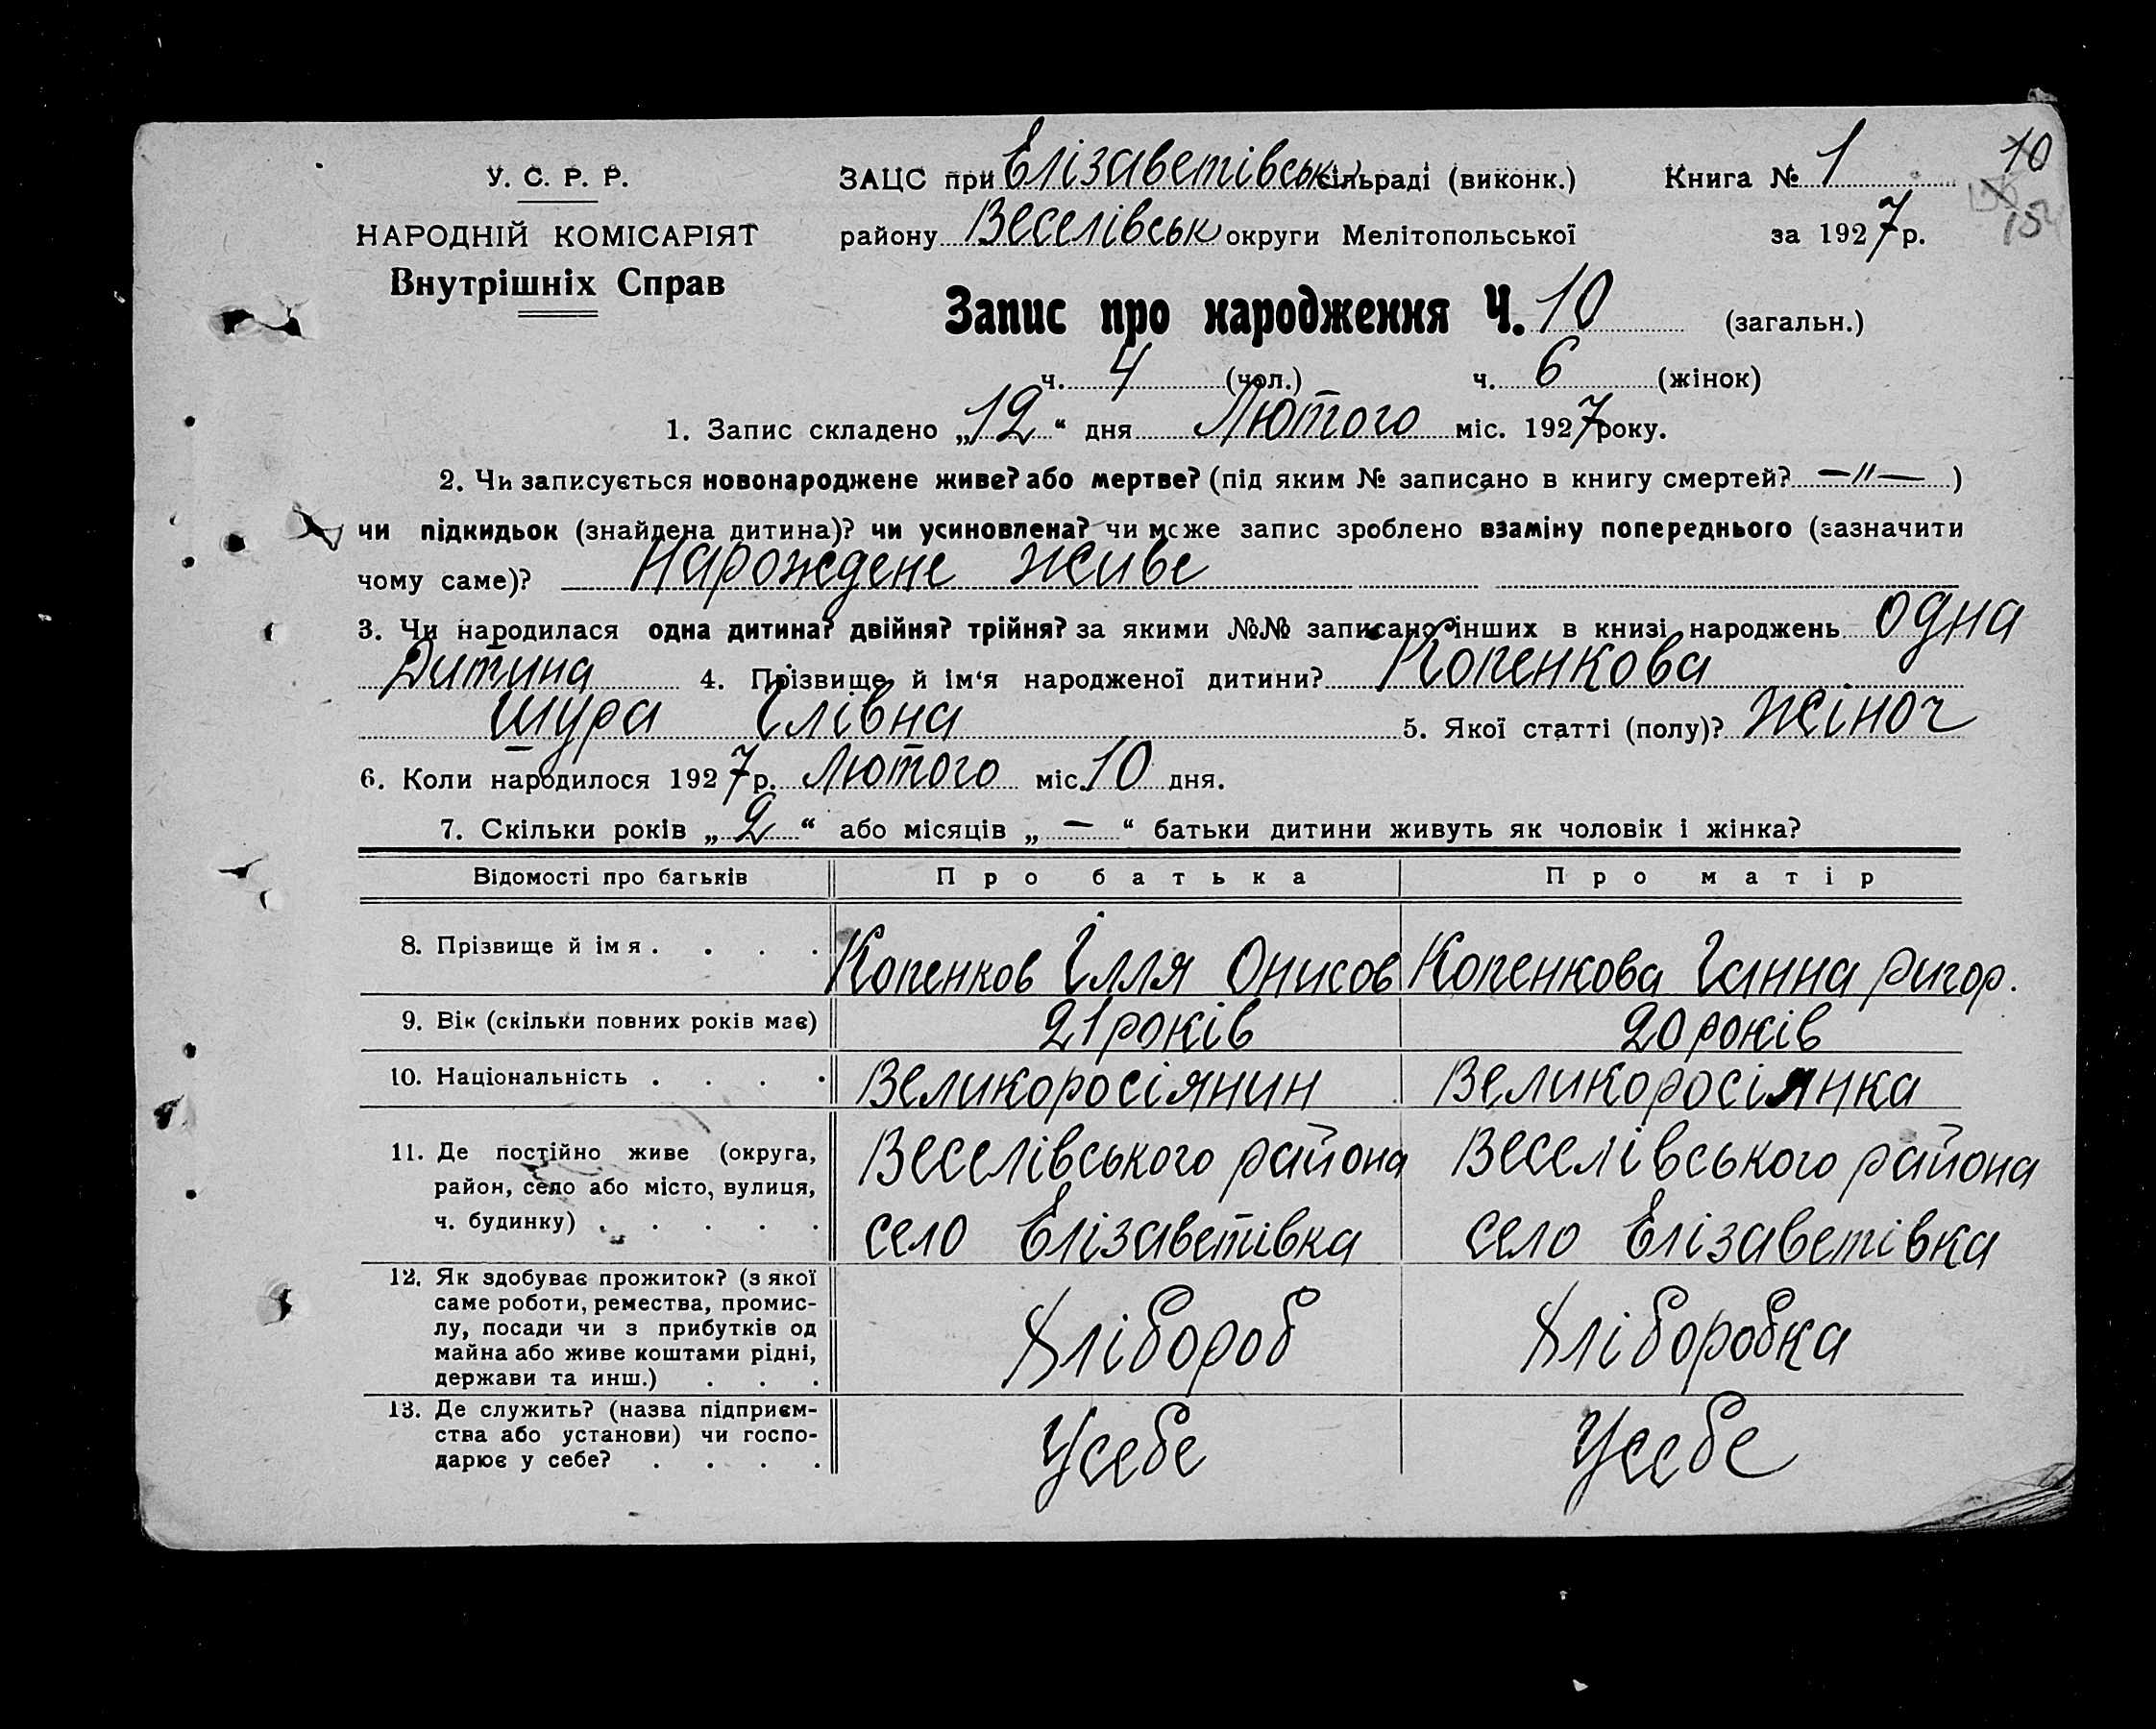 У. С. Р. Р.
НАРОДНІЙ КОМІСАРІЯТ
Внутрішніх Справ
ЗАЦС при Елізаветівськ сільраді (виконк.) Книга № 1
10
району Веселівськ округи Мелітопольської за 1927 р.
15
Запис про народження Ч. 10 (загальн.)
ч. 4 (чол.) ч. 6 (жінок)
1. Запис складено „12“ дня Лютого міс. 1927 року.
2. Чи записується новонароджене живе? або мертве? (під яким № записано в книгу смертей? —〃— )
чи підкидьок (знайдена дитина)? чи усиновлена? чи може запис зроблено взаміну попереднього (зазначити
чому саме)? Нарождене живе
3. Чи народилася одна дитина? двійня? трійня? за якими №№ записано інших в книзі народжень одна
Дитина 4. Прізвище й ім‘я народженої дитини? Копенкова
Шура Ілівна 5. Якої статті (полу)? Жіноч
6. Коли народилося 1927 р. Лютого міс. 10 дня.
7. Скільки років „2“ або місяців „—“ батьки дитини живуть як чоловік і жінка?
Відомості про батьків Про батька Про матір
8. Прізвище й ім я . . . . Копенков Ілля Онисов Копенкова Ганна Ригор.
9. Вік (скільки повних років має) 21 років 20 років
10. Національність . . . . Великоросіянин Великоросіянка
11. Де постійно живе (округа,
район, село або місто, вулиця,
ч. будинку) . . . . .
Веселівського района
село Елізаветівка
Веселівського района
село Елізаветівка
12. Як здобуває прожиток? (з якої
саме роботи, ремества, промис-
лу, посади чи з прибутків од
майна або живе коштами рідні,
держави та инш.) . . .
Хлібороб Хліборобка
13. Де служить? (назва підприєм-
ства або установи) чи госпо-
дарює у себе? . . . .
Усебе Усебе